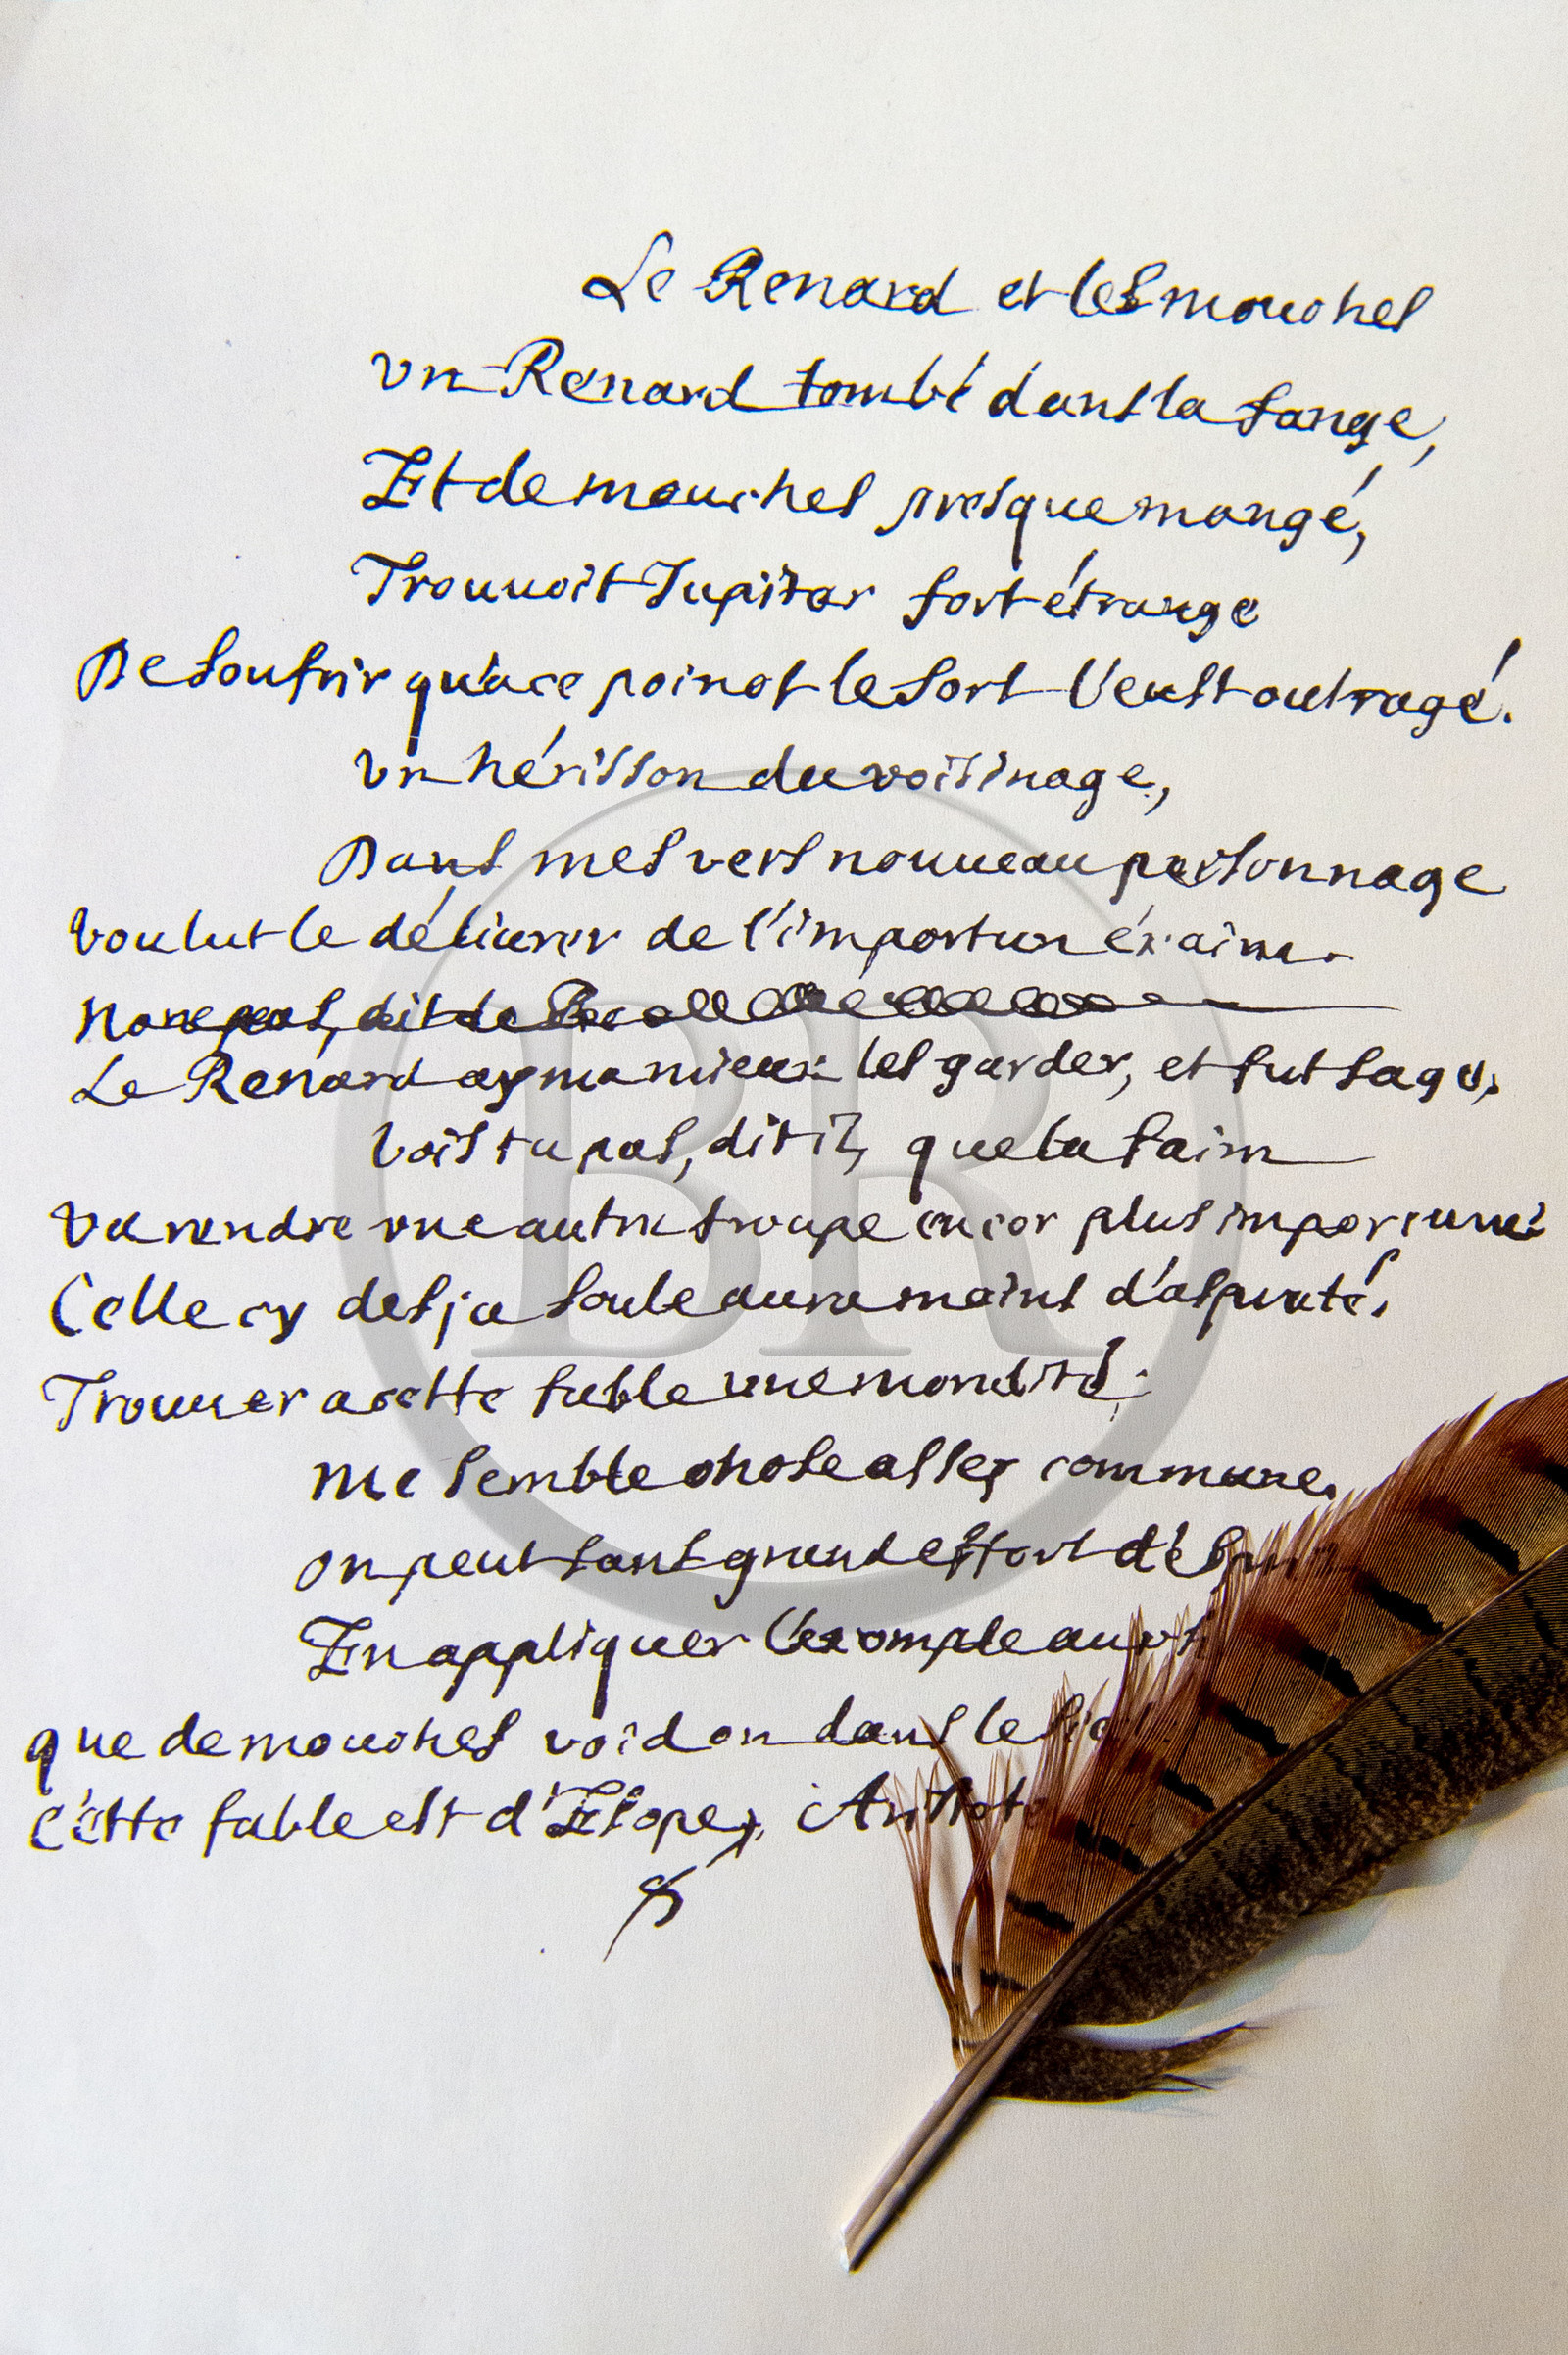 Le Renard et les mouches
Vn Renard tombé dans la fange,
Et de mouches presque mangé,
Trouuoit Jupiter fort étrange
De soufrir qu'a ce poinct le sort l'eust outragé.
Vn hérisson du voisinage,
Dans mes vers nouueau personnage
Voulut le déliurer de l'importun éxaim.
Non pas, dit
Le Renard ayma mieux les garder, et fut sage,
Vois tu pas, dit il, que la faim
Va rendre vne autre troupe encor plus importune?
Celle cy desja soule aura moins d'aspreté.
Trouuer a cette fable vne moralité
Me semble chose assez commune.
On peut sans grand effort d'
En appliquer l'exemple aux
que de mouches void on dans le
Cette fable est d'Esope,
BR